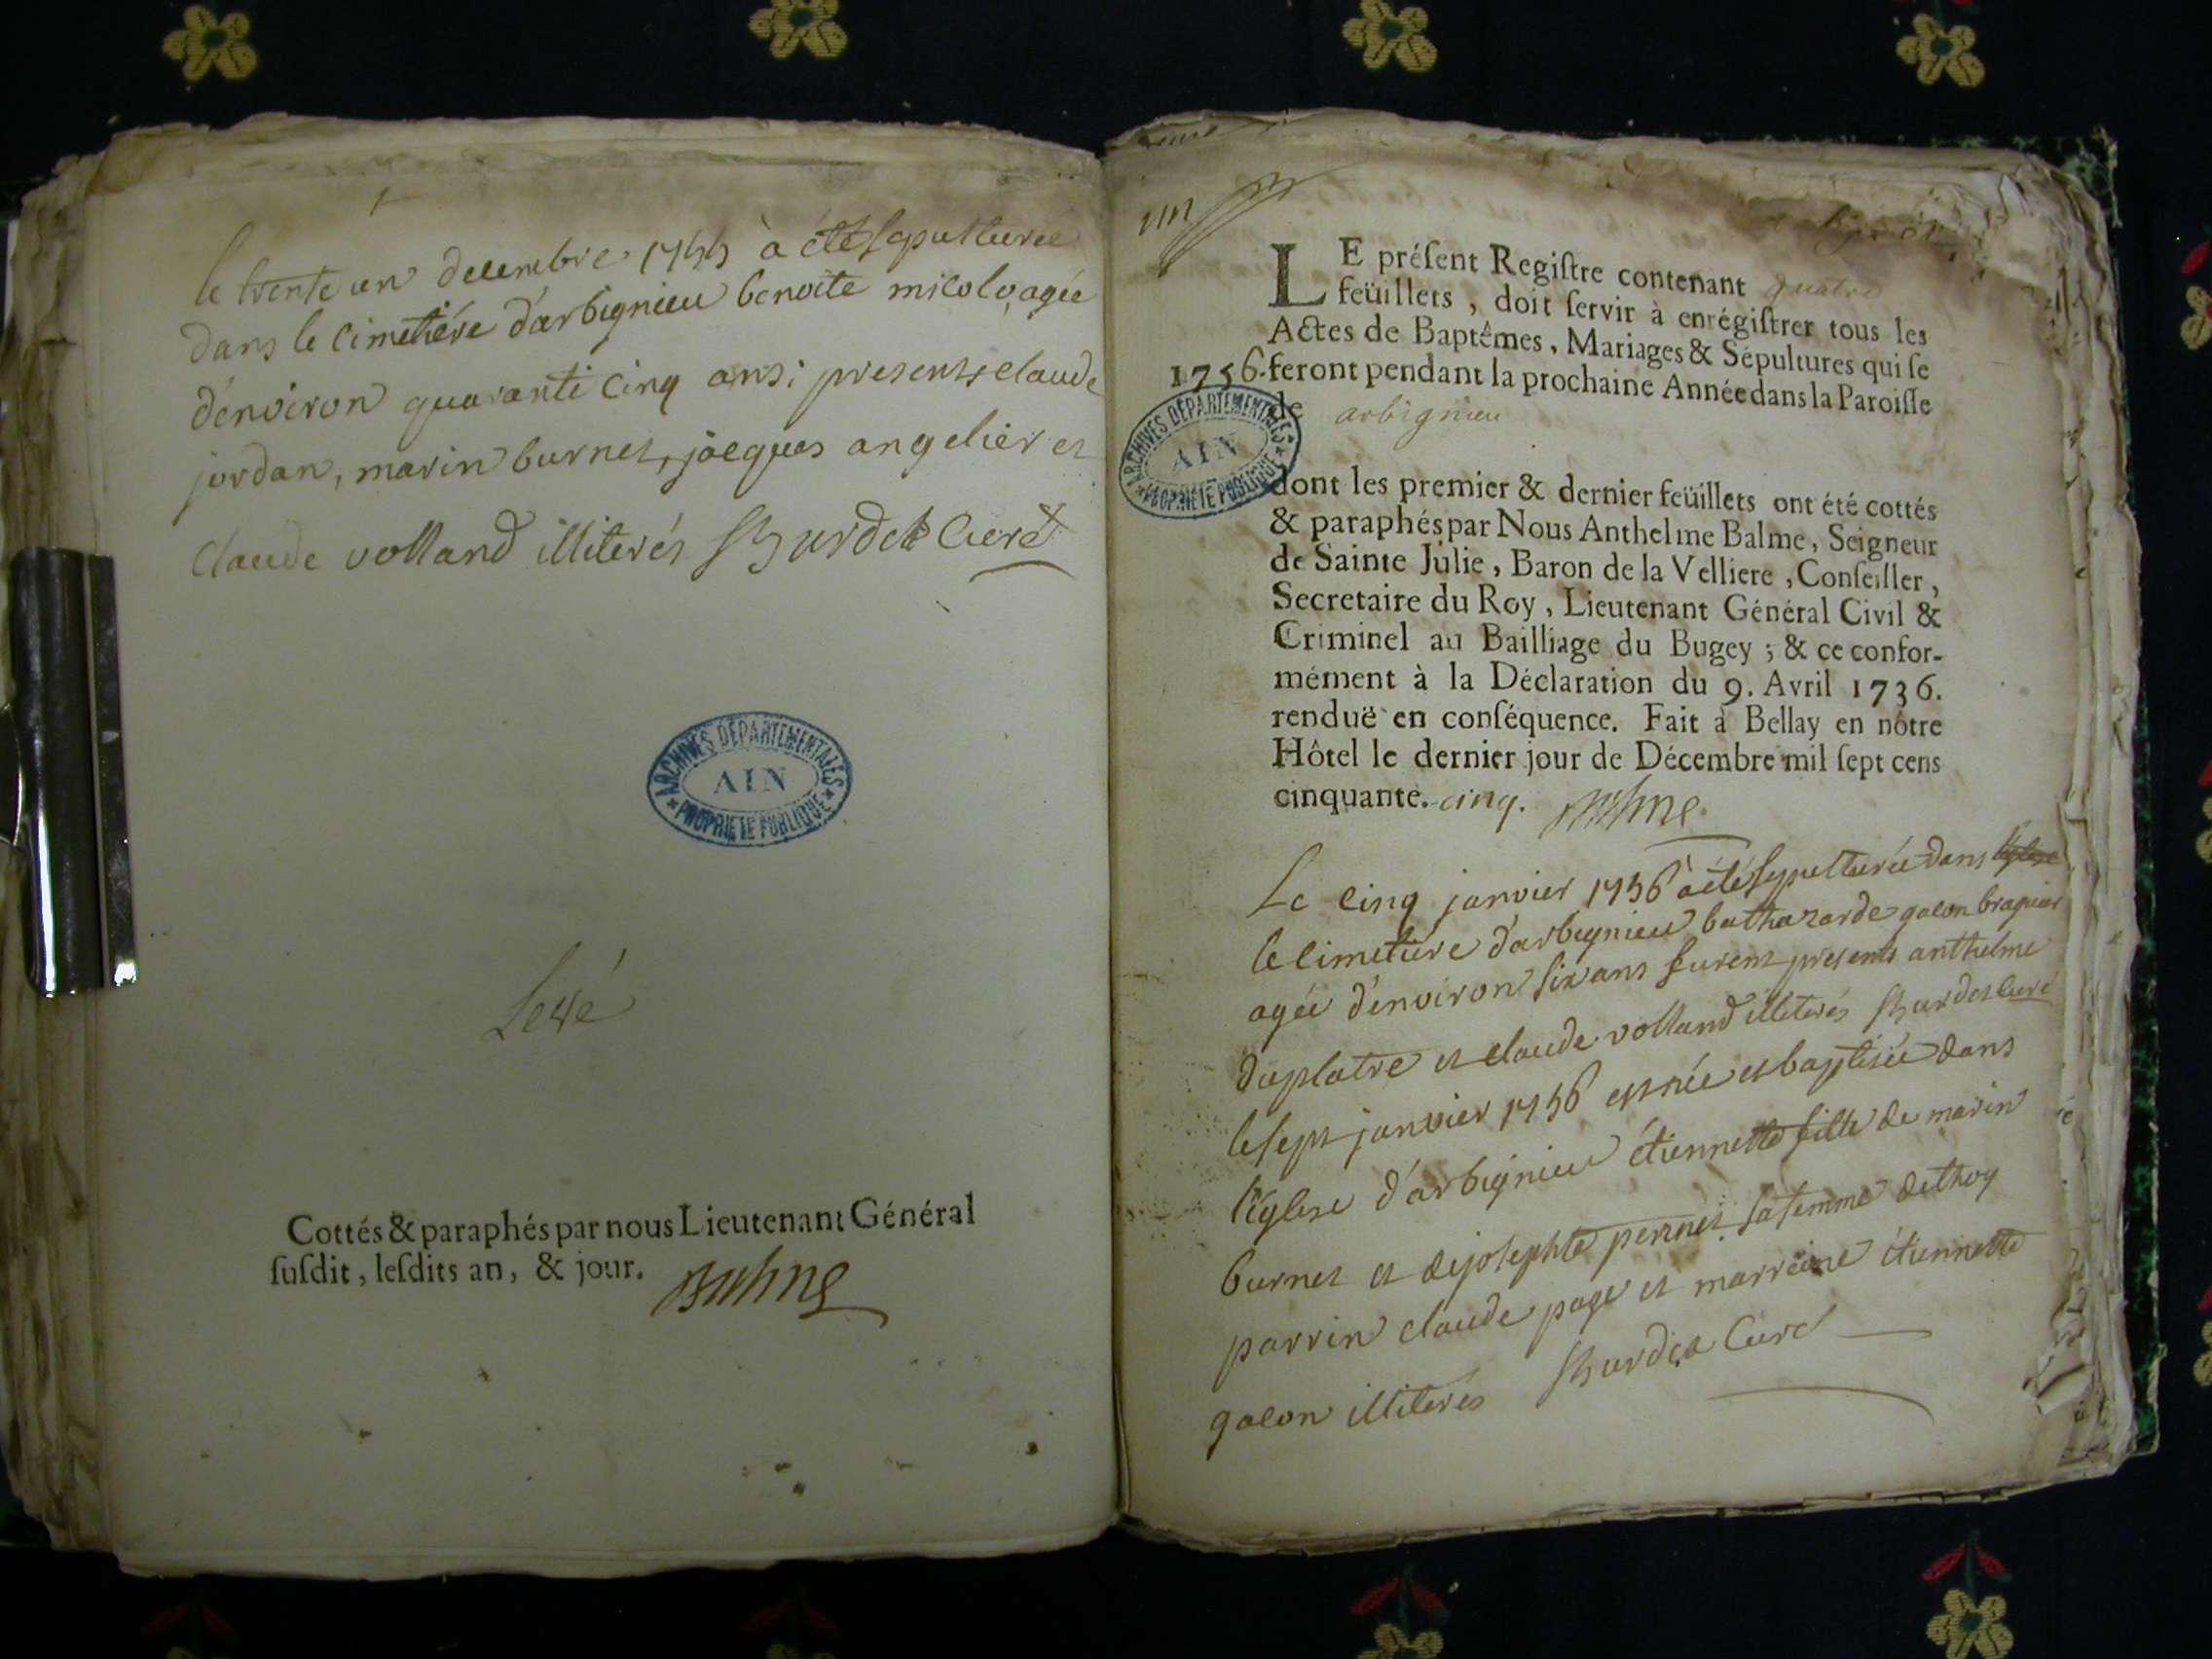 le trente un decembre 1755 à été sepulturée
dans le cimetiére d'arbignieu benoite micolo, agée
d'environ quarante cinq ans; presents claude
jordan, marin burnet, jacques angelier et
claude volland illiterés Burdet Curé
ARCHIVES DÉPARTEMENTALES
AIN
PROPRIÉTÉ PUBLIQUE
Cottés & paraphés par nous Lieutenant Général
ſuſdit, leſdits an, & jour.
un
LE préſent Regiſtre contenant quatre
feüillets, doit ſervir à enrégiſtrer tous les
Actes de Baptêmes, Mariages & Sépultures qui ſe
1756. feront pendant la prochaine Année dans la Paroiſſe
de arbignieu
ARCHIVES DÉPARTEMENTALES
AIN
PROPRIÉTÉ PUBLIQUE
dont les premier & dernier feüillets ont été cottés
& paraphés par Nous Anthelme Balme, Seigneur
de Sainte Julie, Baron de la Velliere, Conſeiller,
Secretaire du Roy, Lieutenant Général Civil &
Criminel au Bailliage du Bugey; & ce confor-
mément à la Déclaration du 9. Avril 1736.
renduë en conſéquence. Fait à Bellay en nôtre
Hôtel le dernier jour de Décembre mil ſept cens
cinquante. cinq.
Le cinq janvier 1756 à été sepulturée dans
le cimetiére d'arbignieu balthazarde galon
agée d'environ six ans furent presents anthelme
duplatre et claude volland illiterés Burdet Curé
le sept janvier 1756 est née et baptisée dans
l'église d'arbignieu étiennette fille de marin
burnet et de josephte pernet sa femme de thoy
parrin claude page et marreine étiennette
galon illiterés Burdet Curé